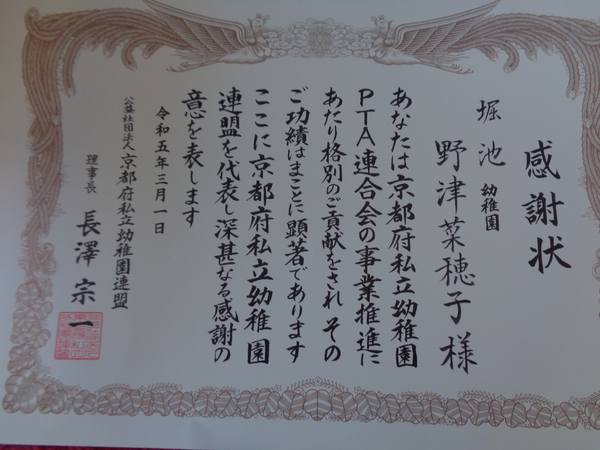 感謝状
堀池幼稚園
野津菜穂子様
あなたは京都府私立幼稚園
PTA連合会の事業推進に
あたり格別のご貢献をされその
ご功績はまことに顕著であります
ここに京都府私立幼稚園
連盟を代表し深甚なる感謝の
意を表します
令和五年三月一日
公益社団法人京都府私立幼稚園連盟
理事長 長澤宗一